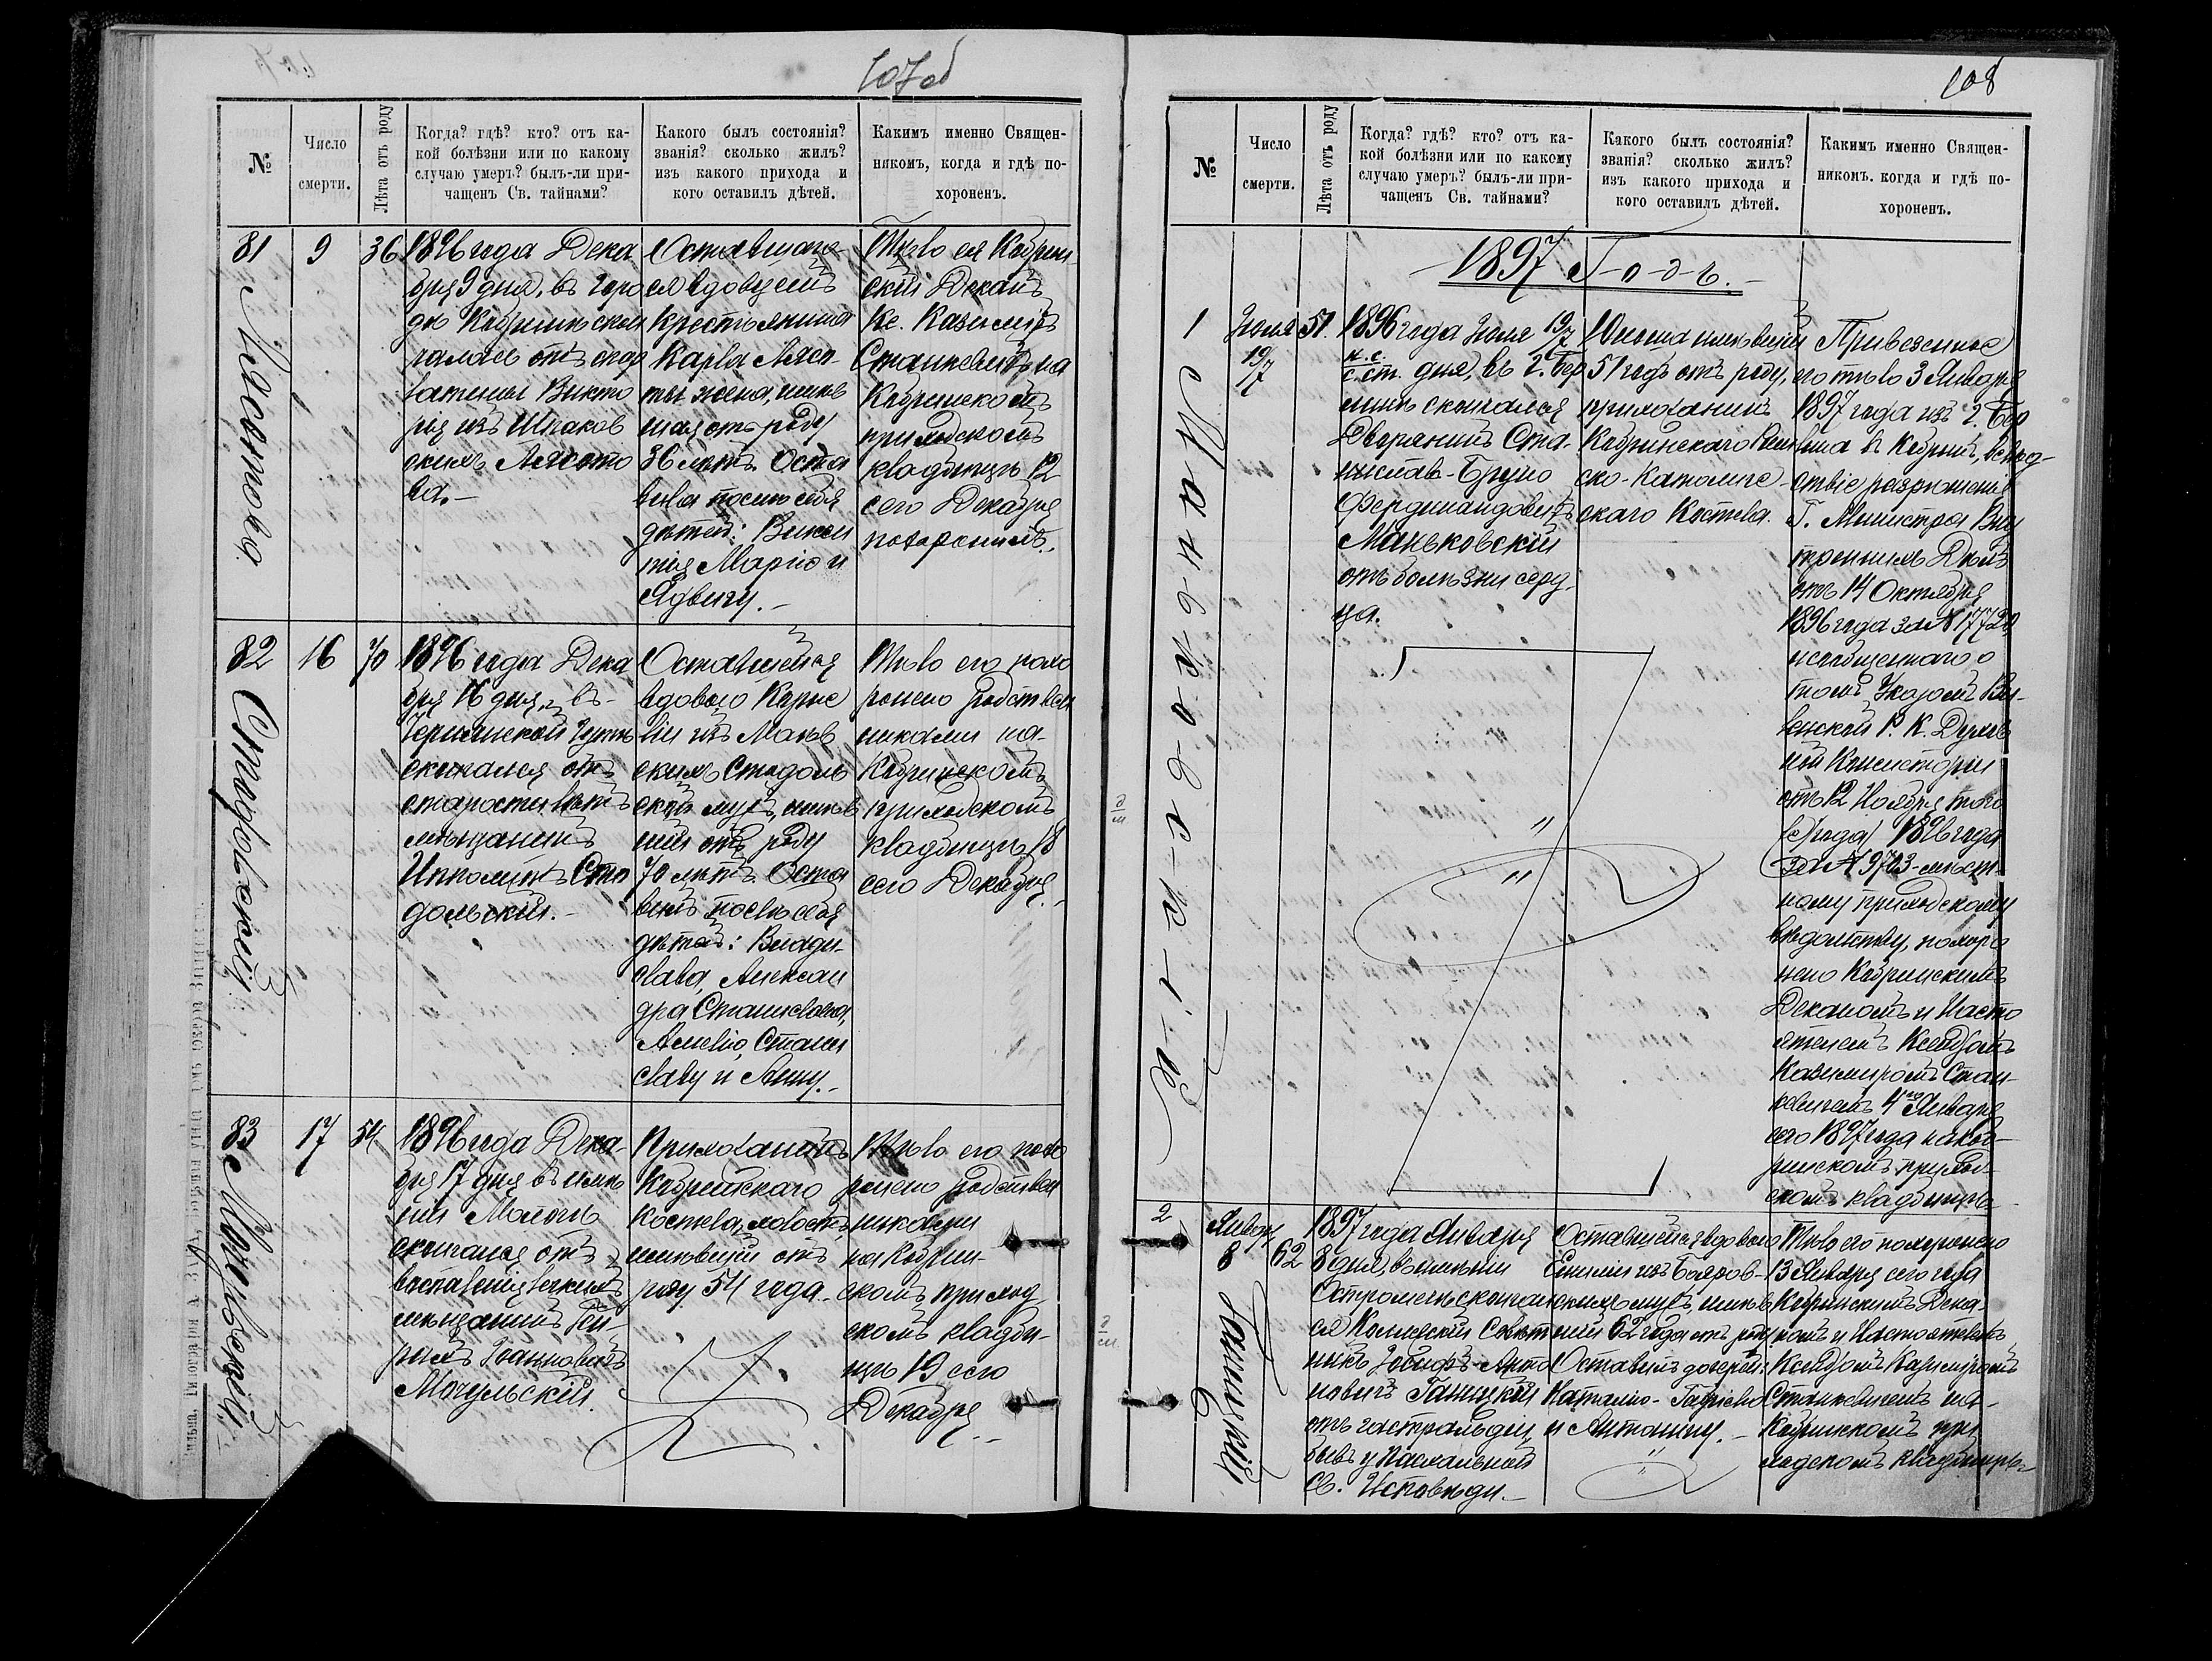 107об
№
Число
смерти.
Лѣта отъ роду
Когда? гдѣ? кто? отъ ка-
кой болѣзни или по какому
случаю умеръ? былъ-ли при-
чащенъ Св. тайнами?
Какого былъ состоянія?
званія? сколько жилъ?
изъ какого прихода и
кого оставилъ дѣтей.
Какимъ именно Священ-
никомъ, когда и гдѣ по-
хороненъ.
81
Лясотова
9
36
1896 года Дека
бря 9 дня, въ горо
дѣ Кобринѣ скон
чалась отъ скор
латины Викто
рія изъ Шпаков
скихъ Лясото
ва.-
Оставшаго-
ся вдовцемъ
Крестьянина
Карла Лясо-
ты жена, имѣв
шая отъ роду
36 лѣтъ. Оста
вила послѣ себя
дѣтей:
Марію и
Ядвигу.-
Тѣло ея Кобрин
скій Деканъ
Кс. Казиміръ
Станкевичъ на
Кобринскомъ
приходскомъ
кладбищѣ 12
сего Декабря
похоронилъ.
82
Стодольскій
16
70
1896 года Дека
бря 16 дня, въ-
скончался отъ
старости лѣтъ
мѣщанинъ
Ипполитъ Сто
дольскій.-
Оставшейся
вдовою Карне
ліи изъ
скихъ Стодоль
ской мужъ, имѣв
шій отъ роду
70 лѣтъ. Оста
вилъ послѣ себя
дѣтей: Влади-
слава, Алексан
дра Станислава,
Амелію, Стани
славу и Анну.-
Тѣло его похо
ронено родствен
никами на-
Кобринскомъ
приходскомъ
кладбищѣ 18
сего Декабря.-
83
Мочульскій
17
54
1896 года Дека-
бря 17 дня въ имѣ
ніи
скончался отъ
воспаленія легкихъ
мѣщанинъ
Іоанновичъ
Мочульскій.
Прихожанинъ
Кобринскаго
костела, холостъ,
имѣвшій отъ
роду 54 года.
Тѣло его похо
ронено родствен
никами
на Кобрин-
скомъ приход
скомъ кладби-
щѣ 19 сего
Декабря.-
108
№
Число
смерти.
Лѣта отъ роду
Когда? гдѣ? кто? отъ ка-
кой болѣзни или по какому
случаю умеръ? былъ-ли при-
чащенъ Св. тайнами?
Какого былъ состоянія?
званія? сколько жилъ?
изъ какого прихода и
кого оставилъ дѣтей.
Какимъ именно Священ-
никомъ. когда и гдѣ по-
хороненъ.
1897 Г-о-д-ъ.-
1
М-а-н-ь-к-о-в-с-к-і-й
Іюля
19/7
51.
1896 года Іюля 19/7
н. с.
с. ст. дня, въ г. Бер
линѣ скончался
Дворянинъ Ста-
ниславъ-Бруно
Фердинандовичъ
Маньковскій
отъ болѣзни серд-
ца.
Юноша имѣвшій
51 годъ отъ роду,
прихожанинъ
Кобринскаго Рим
ско-Католиче-
скаго Костела.
Привезенное
его тѣло 3 Января
1897 года изъ г. Бер
лина въ Кобринъ, вслѣд-
ствіе разрѣшенія
Г. Министра Вну
треннихъ Дѣлъ
отъ 14 Октября
1896 года за №
и сообщеннаго о
томъ Указомъ Ви-
ленской Р. К. Духов
ной Консисторіи
отъ 12 Ноября того
(с) года) 1896 года
за № 9703-мѣст-
ному приходскому
вѣдомству, похоро
нено Кобринскимъ
Деканомъ и Насто
ятелемъ Ксендзомъ
Казиміромъ Стан-
кевичемъ 4го Января
сего 1897 года на Коб-
ринскомъ приход-
скомъ кладбищѣ
2
Ганицкій
Январ
8
62
1897 года Января
8 дня, въ имѣніи
скончал
ся Коллежскій Совѣт
никъ Іосифъ-Анто
новичъ Ганицкій
отъ гастральгіи,
бывъ у Пасхальной
Св. Исповѣди.-
Оставшейся вдовою
Емиліи изъ Бояров-
скихъ мужъ, имѣв
шій 62 года отъ роду.
Оставилъ дочерей:
Наталію-Габріелю
и Антонину.-
Тѣло его похоронено
13 Января сего года
Кобринскимъ Дека-
номъ и Настоятелемъ
Ксендзомъ Казиміромъ
Станкевичемъ на-
Кобринскомъ при
ходскомъ кладбищѣ-